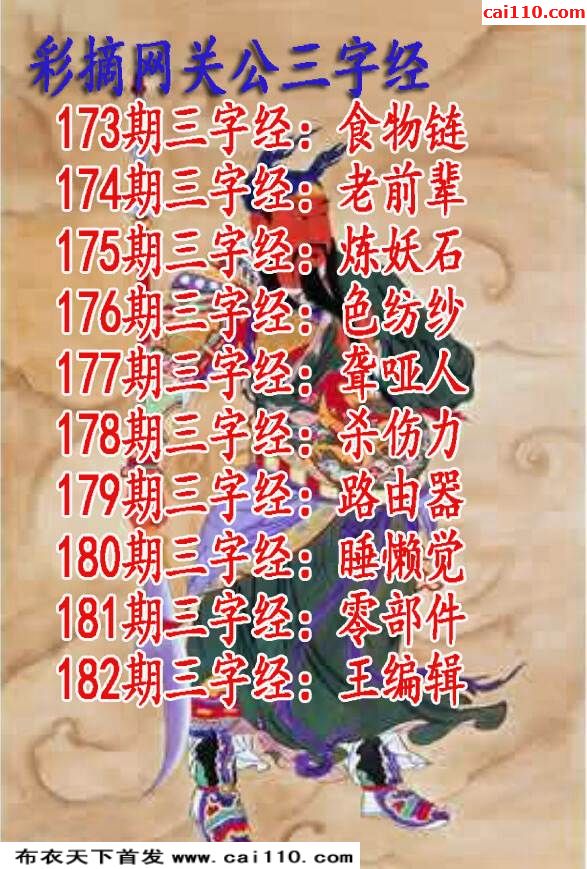 cai110.com
彩摘网关公三字经
173期三字经：食物链
174期三字经：老前辈
175期三字经：炼妖石
176期三字经：色纺纱
177期三字经：聋哑人
178期三字经：杀伤力
179期三字经：路由器
180期三字经：睡懒觉
181期三字经：零部件
182期三字经：王编辑
布衣天下首发 www.cai110.com